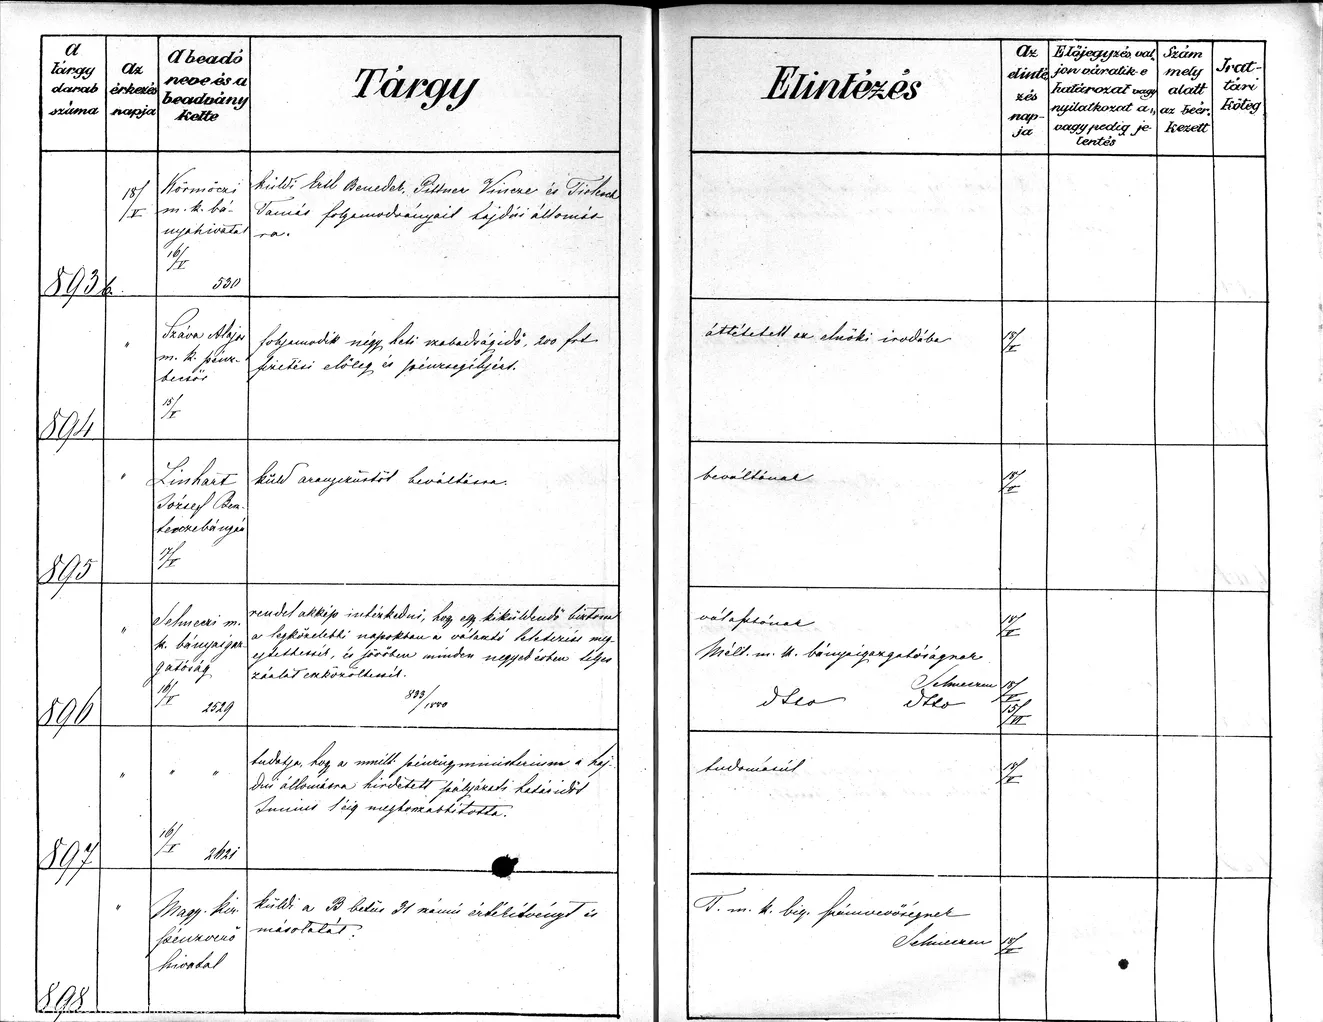 A tárgy darab száma
Az érkezés napja
A beadó neve és a beadvány kelte
Tárgy
Elintézés
Az elinté zés nap- ja
Előjegyzés val- jon váratik-e határozat vagy nyilatkozat a., vagy pedig je- lentés
Szám mely alatt az beér- kezett
Irat- tári köteg
893 b.
18/V
Körmöczi
m. k. bá-
nyahivatal
16/V
530
küldi Ertl Benedek, Pittner Vincze és
Tamás folyamodványait hajdúi állomás
ra.
894
"
Száva Alajos
m. k. pénz-
becsős
15/V
folyamodik négy heti szabadságidő, 200 frt
fizetési előleg és pénzsegélyért.
áttétetett az elnöki irodába
18/V
895
"
Linhart
József Besz-
terczebányán
17/V
küld aranyezüstöt beváltásra.
beváltónak
18/V
896
"
Selmeczi m.
k. bányaigaz-
gatóság
16/V
2529
rendel akkép intézkedni, hogy egy kiküldendő biztos
a legközelebbi napokban a választó
és jövőben minden negyedévben
833/1880
választónak
18/V
Mélt. m. k. bányaigazgatóságnak
Selmeczen 18/V
dtto dtto 15/VI
897
" " "
16/V
2421
tudatja, hogy a mélt. pénzügyministerium a haj-
dúi állomásra hirdetett pályázati határidőt
Junius 1éig meghosszabbította.
tudomásúl
18/V
898
"
Magy. kir.
pénzverő
hivatal
küldi a B betüs 31 számú értékítvényt és
másolatát.
T. m. k. big. fémvevőségnek
Selmeczen 18/V